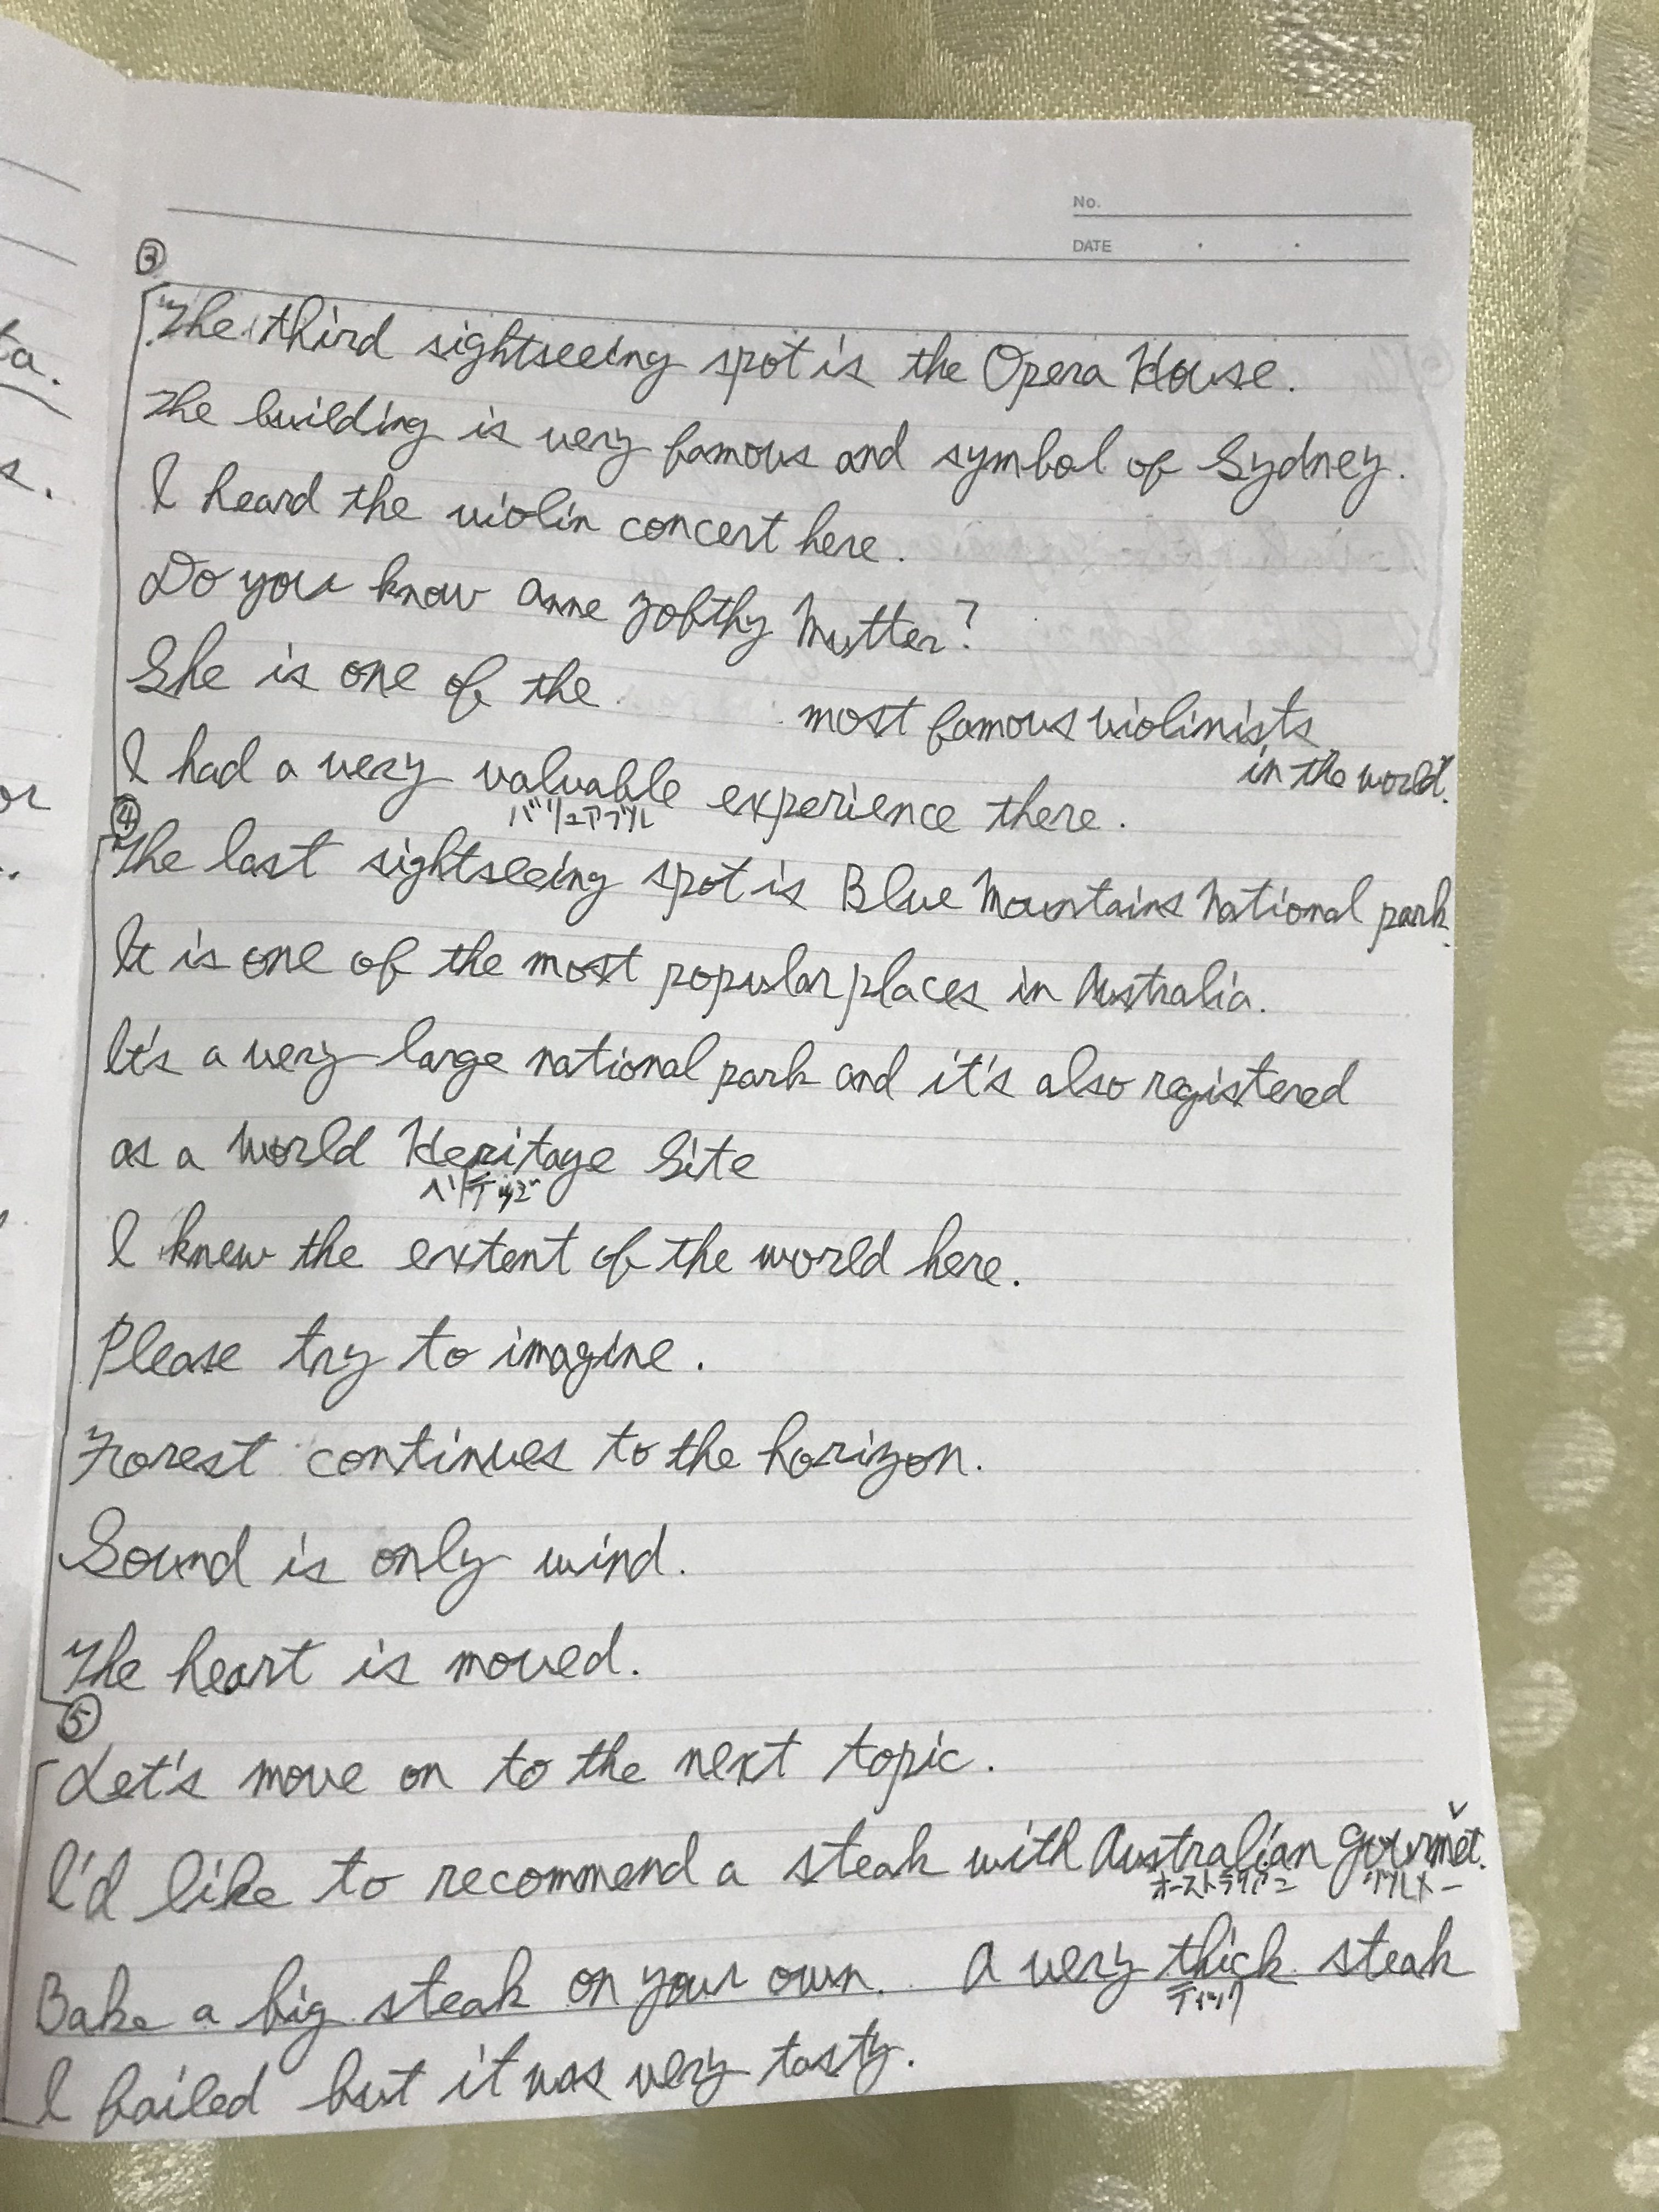 ta.
s.
or
No.
DATE
③
The third sightseeing spot is the Opera House.
The building is very famous and symbol of Sydney.
I heard the violin concert here.
Do you know Anne Zofthy Mutter?
She is one of the most famous violinists
in the world.
I had a very valuable experience there.
バリュアブル
④
The last sightseeing spot is Blue Mountains National park.
It is one of the most popular places in Australia.
It's a very large national park and it's also registered
as a World Heritage Site
ヘリテッジ
I knew the extent of the world here.
Please try to imagine.
Forest continues to the horizon.
Sound is only wind.
The heart is moved.
⑤
Let's move on to the next topic.
I'd like to recommend a steak with Australian gourmet.
オーストラリアン グルメー
Bake a big steak on your own. A very thick steak
ティック
I failed but it was very tasty.